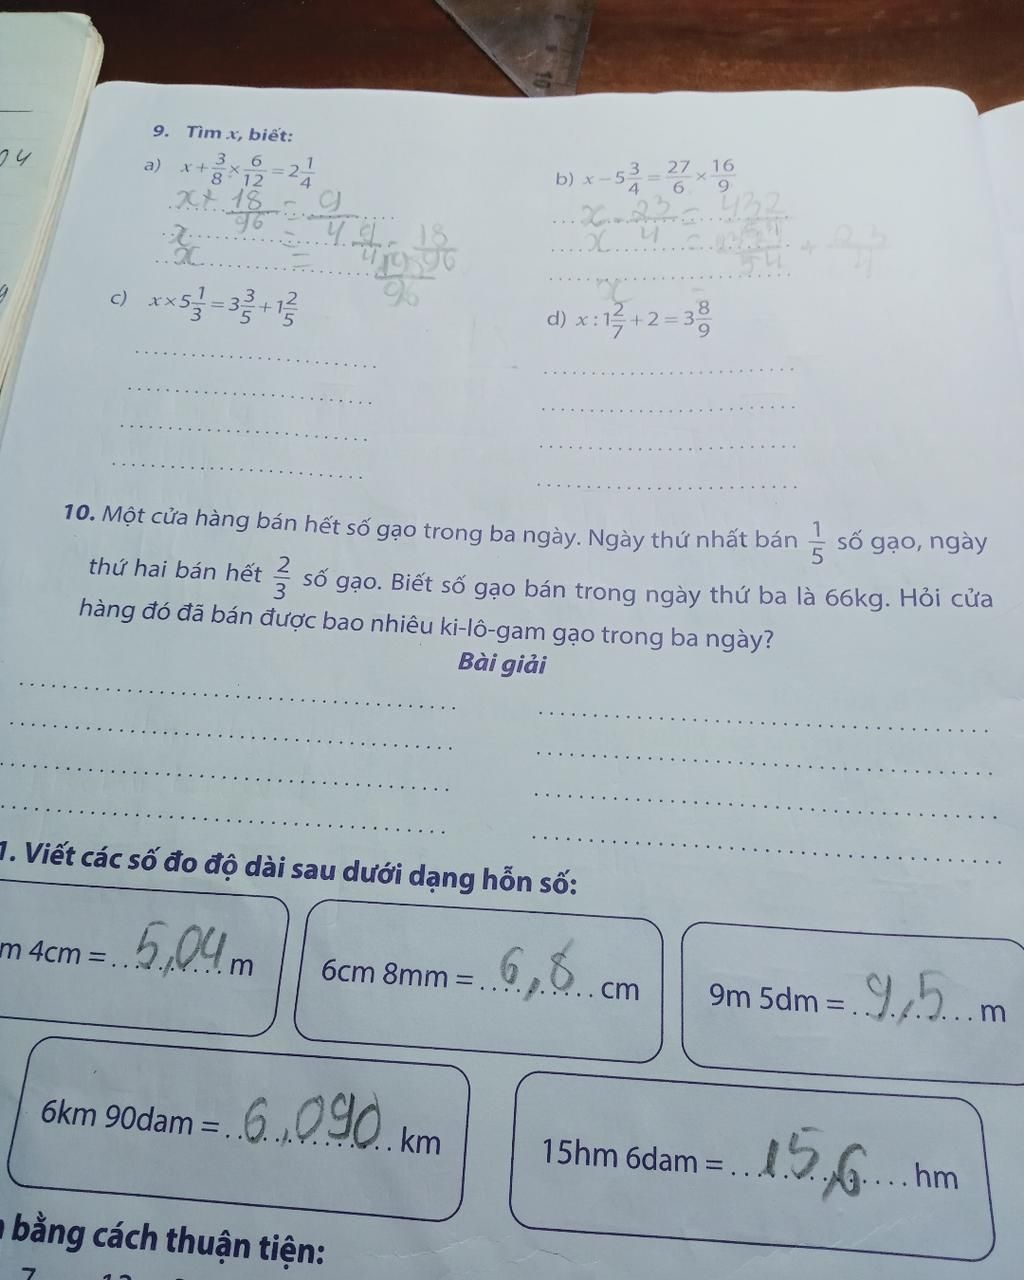 04
9. Tìm x, biết:
a) x + 3/8 × 6/12 = 2 1/4
b) x − 5 3/4 = 27/6 × 16/9
x + 18/96 = 9/4
x - 23/4 = 432/54
x = 9/4 - 18/96
x =
x
96
c) x × 5 1/3 = 3 3/5 + 1 2/5
d) x : 1 2/7 + 2 = 3 8/9
10. Một cửa hàng bán hết số gạo trong ba ngày. Ngày thứ nhất bán 1/5 số gạo, ngày
thứ hai bán hết 2/3 số gạo. Biết số gạo bán trong ngày thứ ba là 66kg. Hỏi cửa
hàng đó đã bán được bao nhiêu ki-lô-gam gạo trong ba ngày?
Bài giải
1. Viết các số đo độ dài sau dưới dạng hỗn số:
m 4cm = 5,04 m
6cm 8mm = 6,8 cm
9m 5dm = 9,5 m
6km 90dam = 6,090 km
15hm 6dam = 15,6 hm
bằng cách thuận tiện:
7